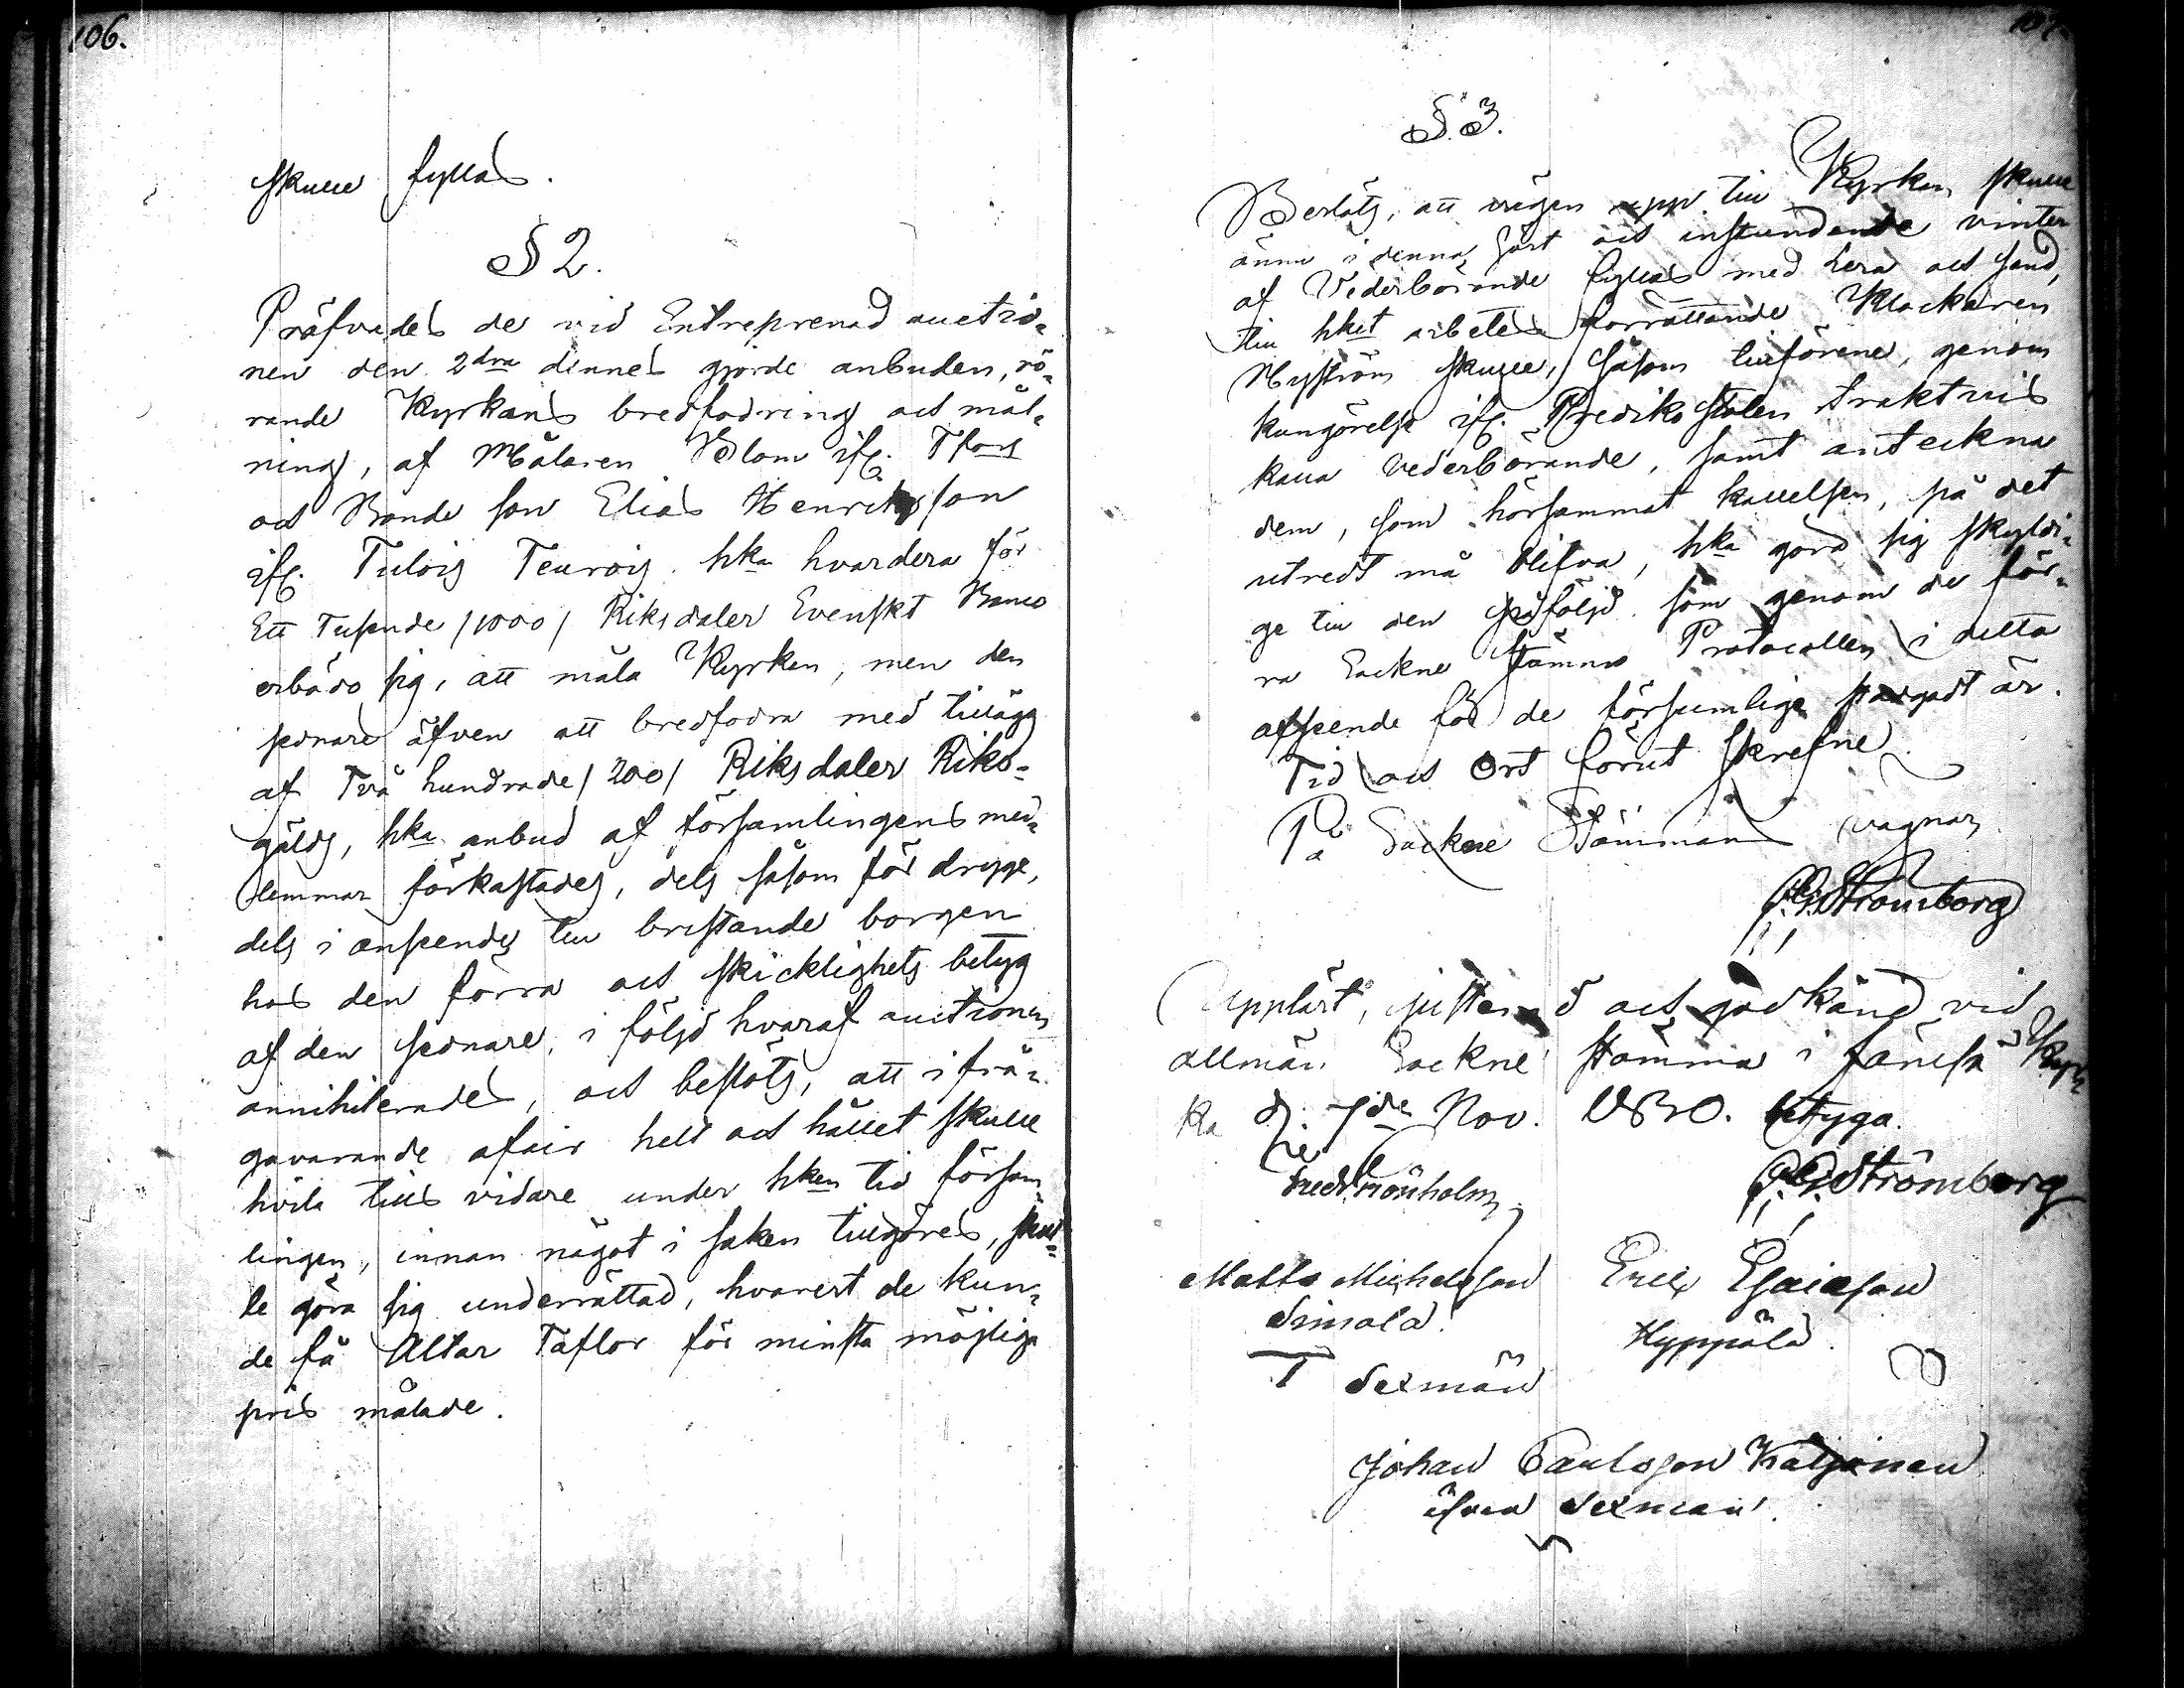 106.
skulle fyllas.
§ 2.
Pröfvades de vid Entreprenad auctio-
nen den 2dra dennes gjorde anbuden, rö-
rande Kyrkans bredfodring och mål-
ning, af Målaren Blom ifr. Tfors
och Bonde son Elias Henriksson
ifr. Tulois Teurois hka hvardera för
Ett Tusende /1000/ Riksdaler Svenskt Banco
erbödo sig, att måla Kyrkan, men den
sednare äfven att bredfodra med tillägg
af Två hundrade /200/ Riksdaler Riks-
gälds, hka anbud af församlingens med-
lemmar förkastades, dels såsom för dryge,
dels i anseende till bristande borgen
hos den förra och skicklighets betyg
af den sednare, i följd hvaraf auctionen
annihilerades, och beslöts, att i frå-
gavarande afair helt och hållet skulle
hvila tills vidare under hken tid försam-
lingen, innan något i saken tillgöres, skul-
le göra sig underrättad, hvarest de kun-
de få Altar Taflor för minsta möjliga
pris målade.
§ 3.
Beslöts, att vägen upp till Kyrkan skulle
ännu i denna höst och instundande vinter
af Vederbörande fyllas med lera och sand,
till hket arbetes förrättande Klockaren
Nyström skulle, såsom tillförene, genom
kungörelse ifr. Predikostolen traktvis
kalla vederbörande, samt anteckna
dem, som hörsammat kallelsen, på det
utredt må blifva, hka gord sig skyldi-
ge till den påföljd som genom de för-
ra Sockne Stämmo Protocollen i detta
afseende för de försumlige stadgadt är.
Tid och Ort förut skrefne.
På Sockne Stämmans vägnar
Strömborg
Uppläst, justerad och godkänd vid
allmän Sockne stämma i Kyr-
ka d. 7de Nov. betyga.
Strömborg
Matts Michelsson Eric Esaiasson
Simola. Hyppälä.
Sexmän
Johan Paulsson Katjainen
äfven sexman.